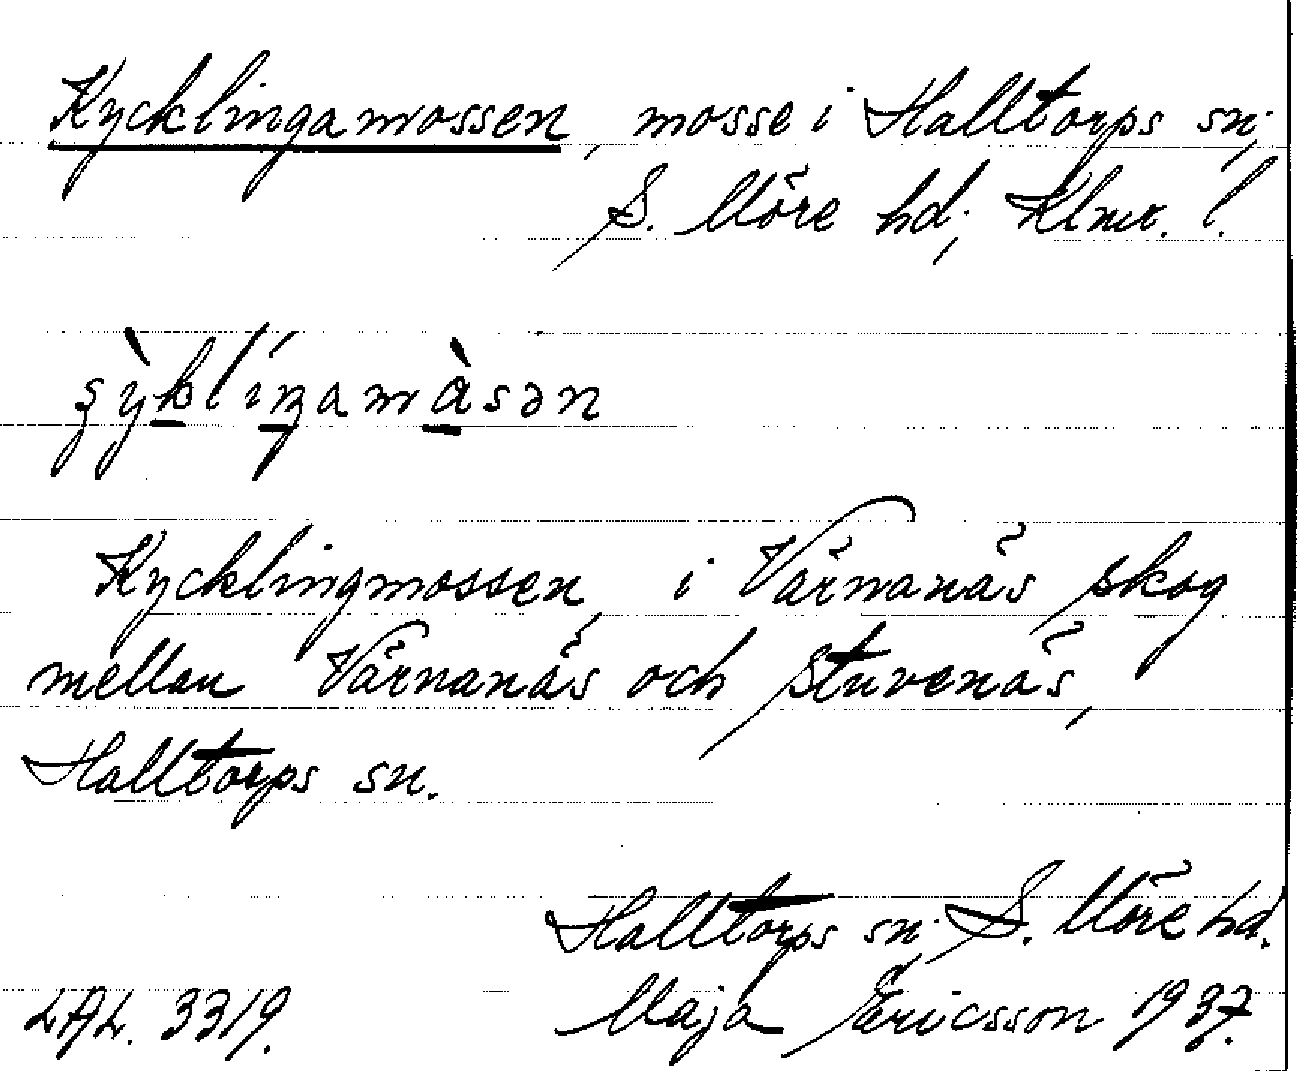 Kycklingamossen, mosse i Halltorps sn;
S. Möre hd; Klmr. l.
Kycklingmossen, i Värnanäs skog
mellan Värnanäs och Stuvenäs,
Halltorps sn.
Halltorps sn; S. Möre hd.
LAL. 3319. Maja Ericsson 1937.